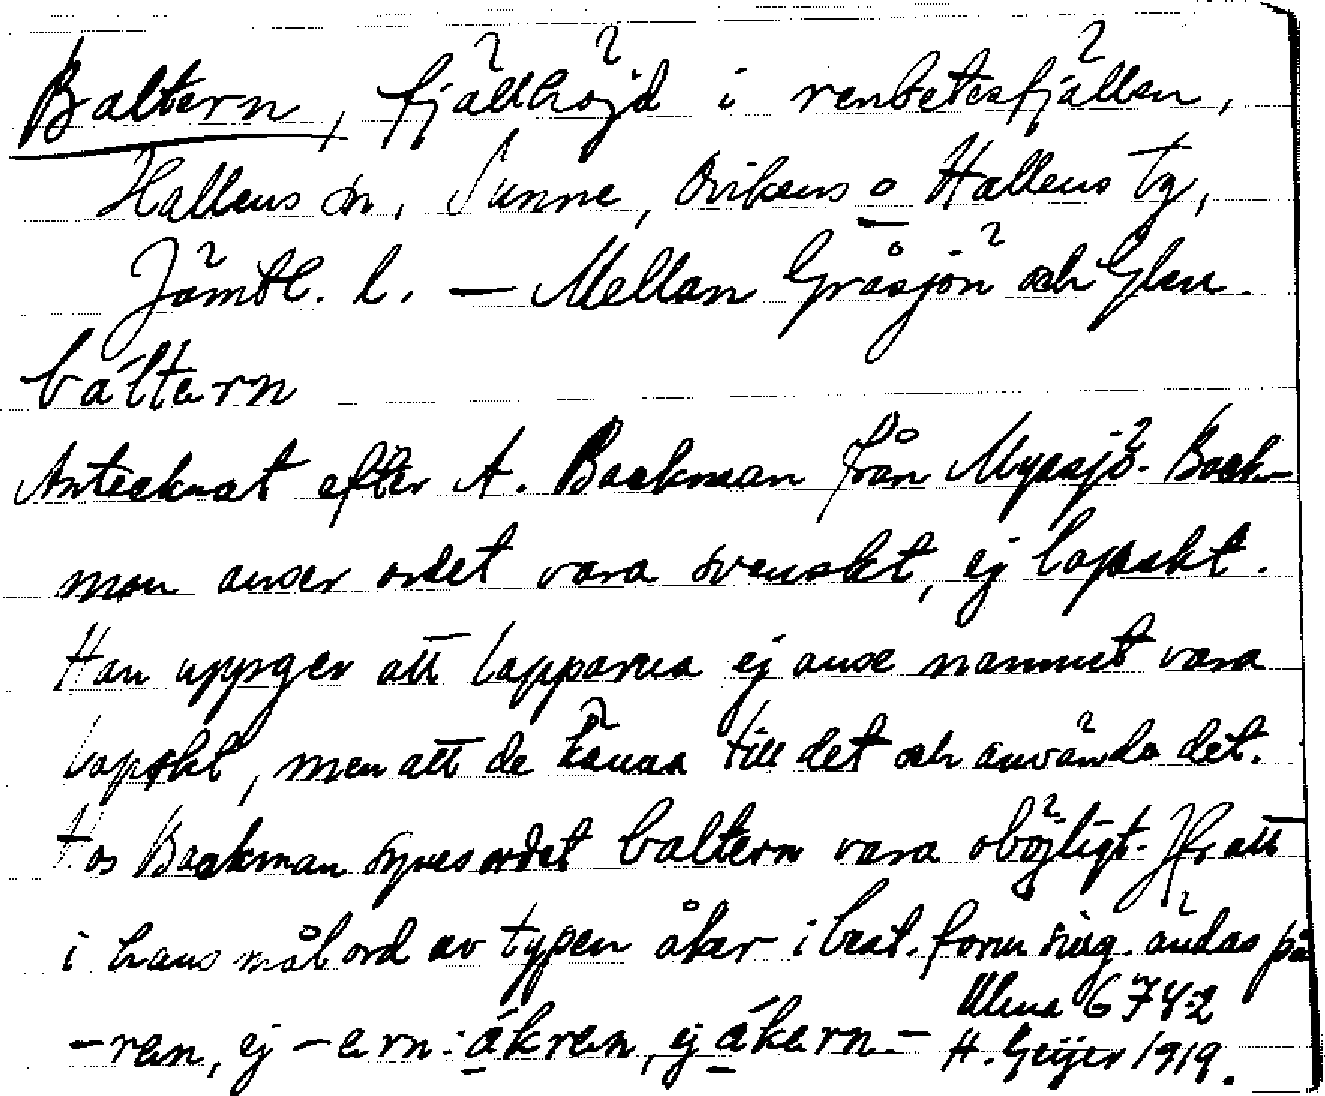 Baltern, fjällhöjd i renbetesfjällen,
Hallens sn, Sunne, Ovikens o Hallens tg,
Jämtl. l. — Mellan Gråsjön och Glen.
báltern
Antecknat efter A. Backman från Myssjö. Back-
man anser ordet vara svenskt, ej lapskt.
Han uppger att lapparna ej anse namnet vara
lapskt, men att de känna till det och använda det.
Hos Backman synes ordet baltern vara oböjligt. Jfr att
i hans mål ord av typen åker i best. form sing. ändas på
-ren, ej -ern: ákren, ej ákern. -
Ulma 678:2
H. Geijer 1919.